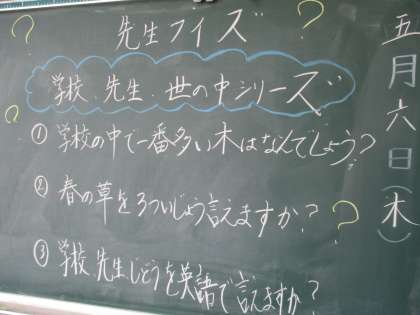 五月六日(木)
先生クイズ
学校、先生、世の中シリーズ
①学校の中で一番多い木はなんでしょう?
②春の草を3ついじょう言えますか?
③学校 先生 じどうを英語で言えますか?